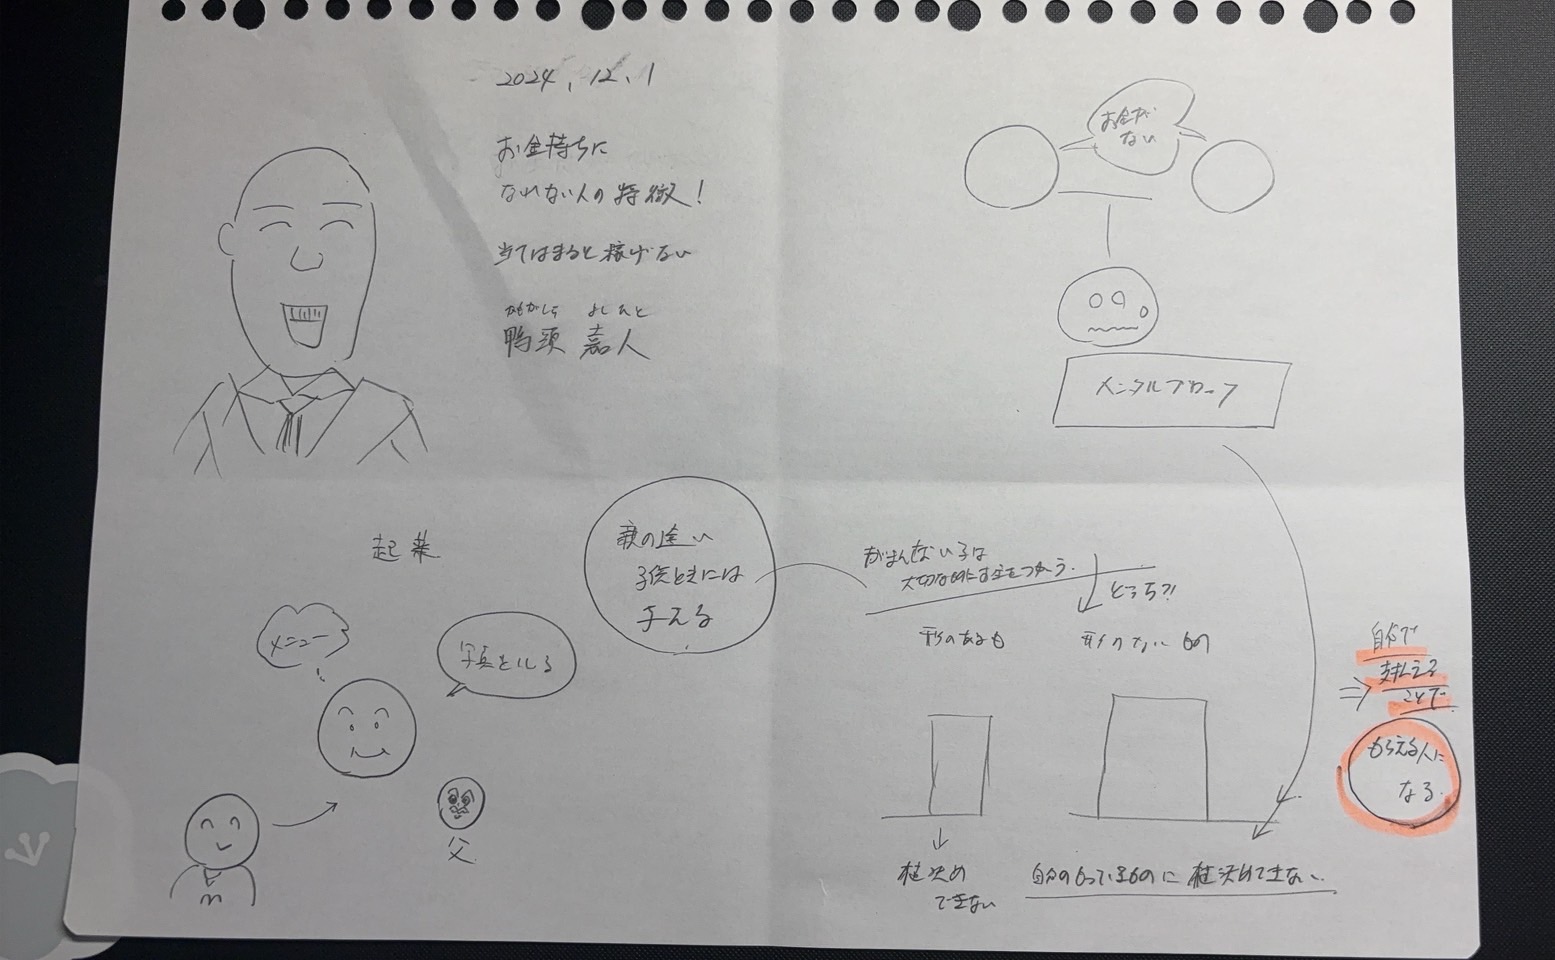 2024.12.1
お金持ちに
なれない人の特徴！
当てはまると稼げない
かもがしら よしひと
鴨頭 嘉人
お金が
ない
メンタルブロック
起業
メニュー
写真をとる
父
親の違い
子供ときには
与える
がまんない子は
大切な時にお金をつかう.
どっち?!
形のあるもの
形のないもの
値決め
できない
自分のもっているものに値決めできない.
自分で
支払える
ことで.
もらえる人に
なる.